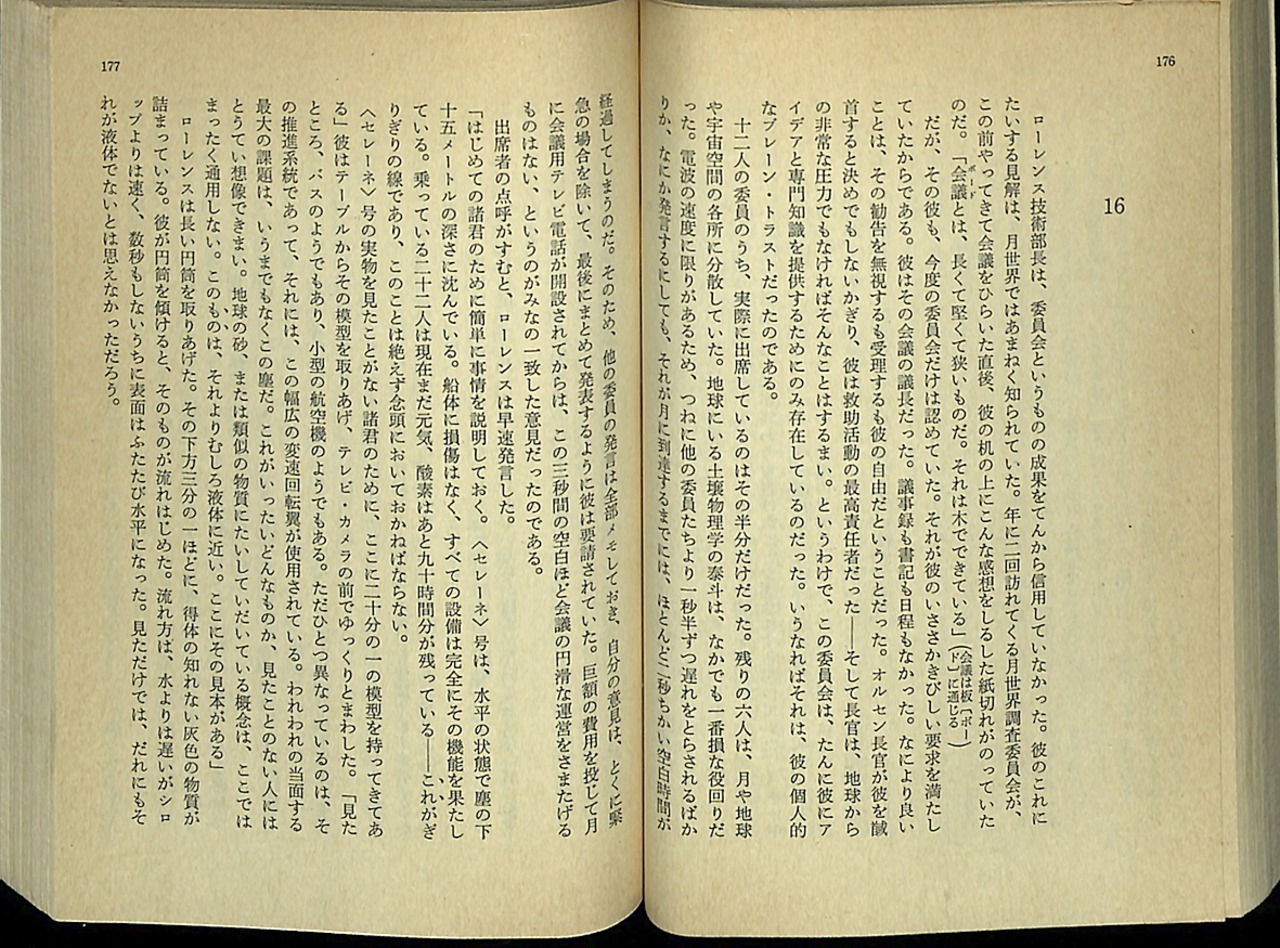 176
16
ローレンス技術部長は、委員会というものの成果をてんから信用していなかった。彼のこれに
たいする見解は、月世界ではあまねく知られていた。年に二回訪れてくる月世界調査委員会が、
この前やってきて会議をひらいた直後、彼の机の上にこんな感想をしるした紙切れがのっていた
のだ。「会議とは、長くて堅くて狭いものだ。それは木でできている」(会議は板〔ボード〕に通じる)
ボード
だが、その彼も、今度の委員会だけは認めていた。それが彼のいささかきびしい要求を満たし
ていたからである。彼はその会議の議長だった。議事録も書記も日程もなかった。なにより良い
ことは、その勧告を無視するも受理するも彼の自由だということだった。オルセン長官が彼を馘
首すると決めでもしないかぎり、彼は救助活動の最高責任者だった――そして長官は、地球から
の非常な圧力でもなければそんなことはするまい。というわけで、この委員会は、たんに彼にア
イデアと専門知識を提供するためにのみ存在しているのだった。いうなればそれは、彼の個人的
なブレーン・トラストだったのである。
十二人の委員のうち、実際に出席しているのはその半分だけだった。残りの六人は、月や地球
や宇宙空間の各所に分散していた。地球にいる土壌物理学の泰斗は、なかでも一番損な役回りだ
った。電波の速度に限りがあるため、つねに他の委員たちより一秒半ずつ遅れをとらされるばか
りか、なにか発言するにしても、それが月に到達するまでには、ほとんど二秒ちかい空白時間が
177
経過してしまうのだ。そのため、他の委員の発言は全部メモしておき、自分の意見は、とくに緊
急の場合を除いて、最後にまとめて発表するように彼は要請されていた。巨額の費用を投じて月
に会議用テレビ電話が開設されてからは、この三秒間の空白ほど会議の円滑な運営をさまたげる
ものはない、というのがみなの一致した意見だったのである。
出席者の点呼がすむと、ローレンスは早速発言した。
「はじめての諸君のために簡単に事情を説明しておく。〈セレーネ〉号は、水平の状態で塵の下
十五メートルの深さに沈んでいる。船体に損傷はなく、すべての設備は完全にその機能を果たし
ている。乗っている二十二人は現在まだ元気、酸素はあと九十時間分が残っている――これがぎ
りぎりの線であり、このことは絶えず念頭においておかねばならない。
〈セレーネ〉号の実物を見たことがない諸君のために、ここに二十分の一の模型を持ってきてあ
る」彼はテーブルからその模型を取りあげ、テレビ・カメラの前でゆっくりとまわした。「見た
ところ、バスのようでもあり、小型の航空機のようでもある。ただひとつ異なっているのは、そ
の推進系統であって、それには、この幅広の変速回転翼が使用されている。われわれの当面する
最大の課題は、いうまでもなくこの塵だ。これがいったいどんなものか、見たことのない人には
とうてい想像できまい。地球の砂、または類似の物質にたいしていだいている概念は、ここでは
まったく通用しない。このものは、それよりむしろ液体に近い。ここにその見本がある」
ローレンスは長い円筒を取りあげた。その下方三分の一ほどに、得体の知れない灰色の物質が
詰まっている。彼が円筒を傾けると、そのものが流れはじめた。流れ方は、水よりは遅いがシロ
ップよりは速く、数秒もしないうちに表面はふたたび水平になった。見ただけでは、だれにもそ
れが液体でないとは思えなかっただろう。